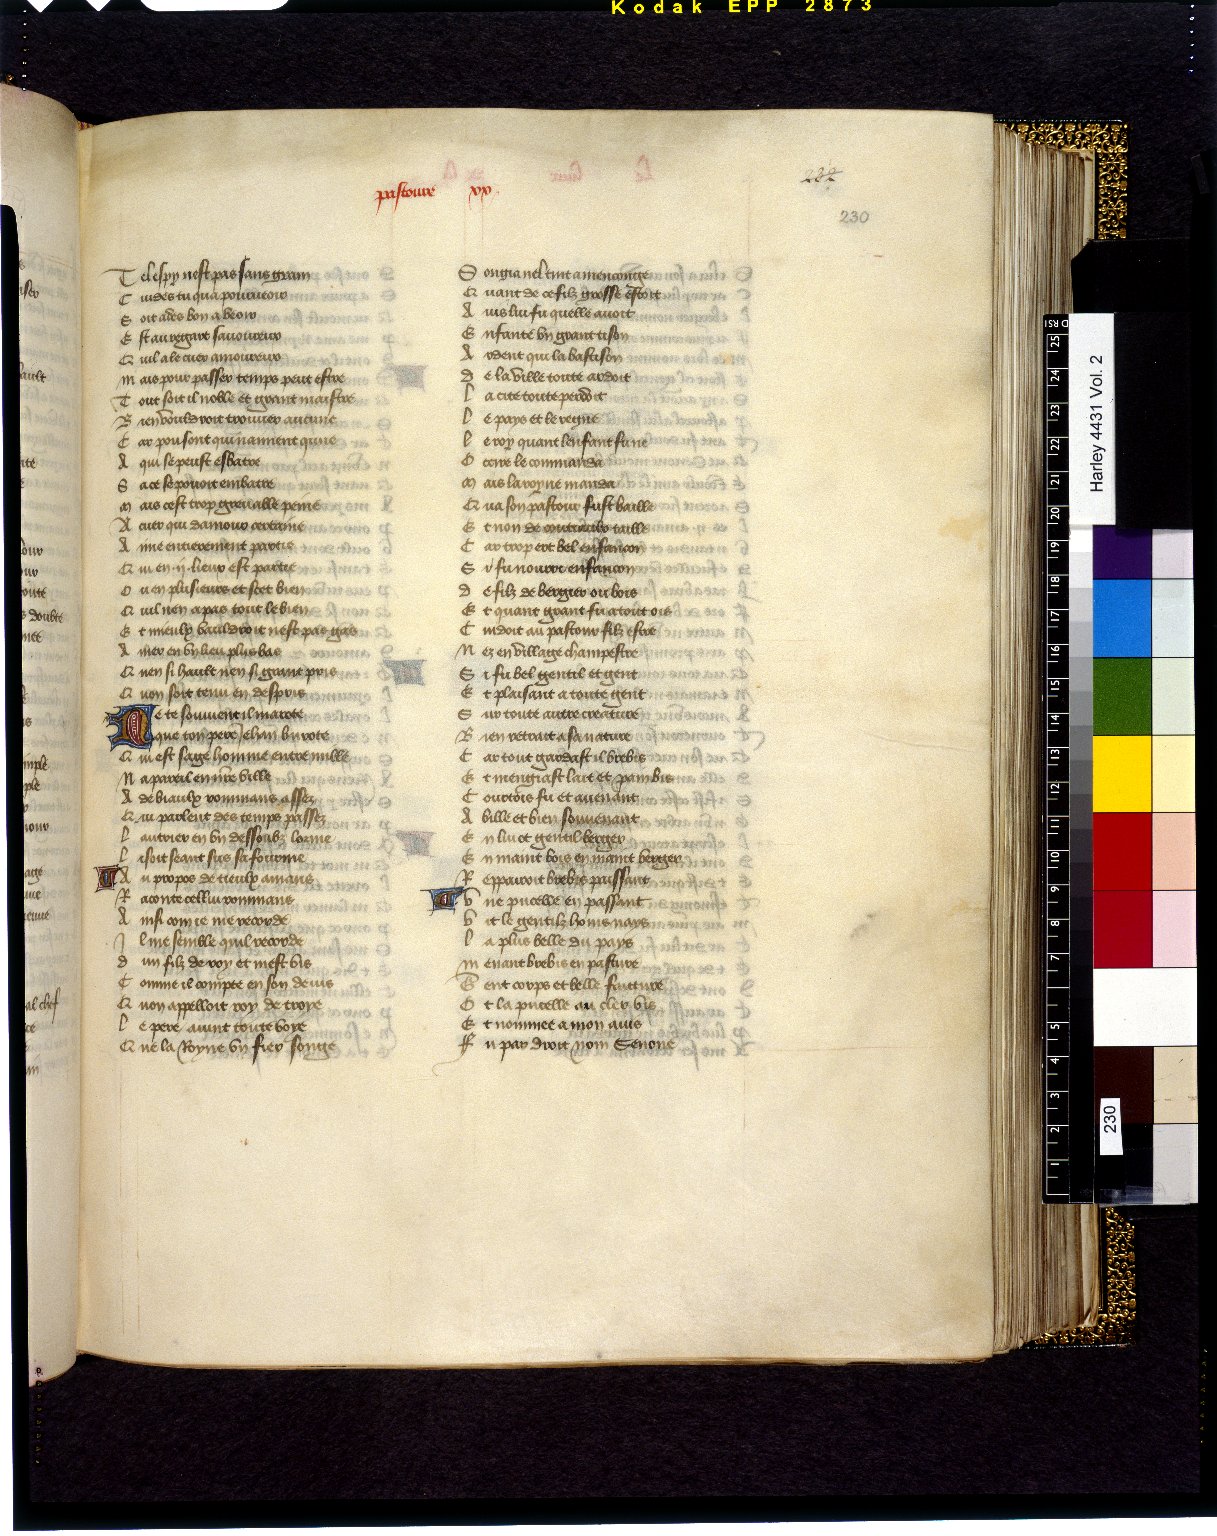 Kodak EPP 2873
pastoure xx.
232
230
Tel espoy nest pas sans grain
Cuides tu qua pourueoir
Soit ades bon a veoir
Est au regart sauoureux
Qui a le cuer amoureux
Mais pour passer temps peut estre
Tout soit il noble et grant maistre
Bien vouldroit trouuer aucune
Car pou sont qui nament qune
A qui se peust esbatre
Sa ce se pouoit embatre
Mais cest trop greuable peine
A cuer qui damour certaine
Aime entierement partis
Qui en .ii. lieux est partis
Ou en plusieurs et scet bien
Quil nen a pas tout le bien
Et mieulx vauldroit nest pas gas
Amer en un lieu plus bas
Quen si hault nen si grant pris
Quon soit tenu en despris
Ne te souuient il marote
que ton pere Jehan burote
Qui est sage homme entre mille
Na pareil en nre ville
A de biaulx rommans assez
Qui parlent des temps passez
Lautrier en un dessoubz lorme
Lisoit seant sus sa fourme
A un propos de tieulx amans
Raconte cellui rommans
Ainsi com ie me recorde
Il me semble quil recorde
dun filz de roy et mest vis
Comme il compte en son deuis
Quon appelloit roy de troye
Le pere auint toute voye
Que la Royne un fier songe
Songia nel tint a menconge
Quant de ce filz grosse estoit
Auis lui fu quelle auoit
Enfanté un grant tison
Ardent qui la bastison
de la ville toute ardoit
La cite toute perdoit
Le pays et le regne
Le roy quant lenfant fu ne
Occire le commanda
Mais la royne manda
Qua son pastour fust baille
Et non de coutiaulx taille
Car trop ert bel enfancon
Si fu nourri en facon
de filz de bergier ou bois
Et quant grant fu atout ois
Cuidoit au pastour filz estre
Nez en village champestre
Si fu bel gentil et gent
Et plaisant a toute gent
Sur toute autre creature
Bien retrait a sa nature
Car tout gardast il brebis
Et mengiast lait et pain bis
Courtois fu et auenant
Abille et bien souuenant
En lui ot gentil bergier
En maint bois en maint bergier
Repparoit brebis paissant
Une pucelle en passant
Vit le gentilz homs nays
La plus belle du pays
Menant brebis en pasture
Gent corps et belle faitture
Ot la pucelle au cler vis
Et nommee a mon auis
Fu par droit nom Senone
Harley 4431 Vol. 2
230
25
24
23
22
21
20
19
18
17
16
15
14
13
12
11
10
9
8
7
5
4
3
2
1